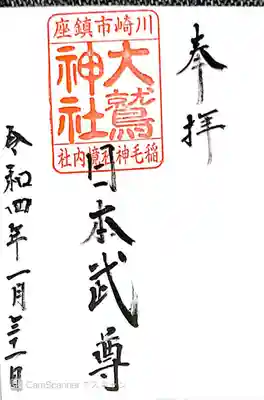 奉拝
川崎市鎮座
大鷲神社
稲毛神社境内社
日本武尊
令和四年一月三十一日
CamScanner でスキャン